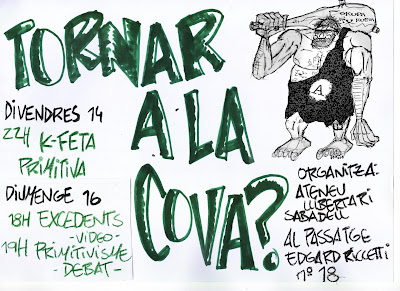 TORNAR
A LA
COVA?
DIVENDRES 14
22H K-FETA
PRIMITIVA
DIUMENGE 16
18H EXCEDENTS
-VIDEO-
19H PRIMITIVISME
-DEBAT-
A
ORGANITZA:
ATENEU
LLIBERTARI
SABADELL
AL PASSATGE
EDGARD RICCETTI
Nº 18